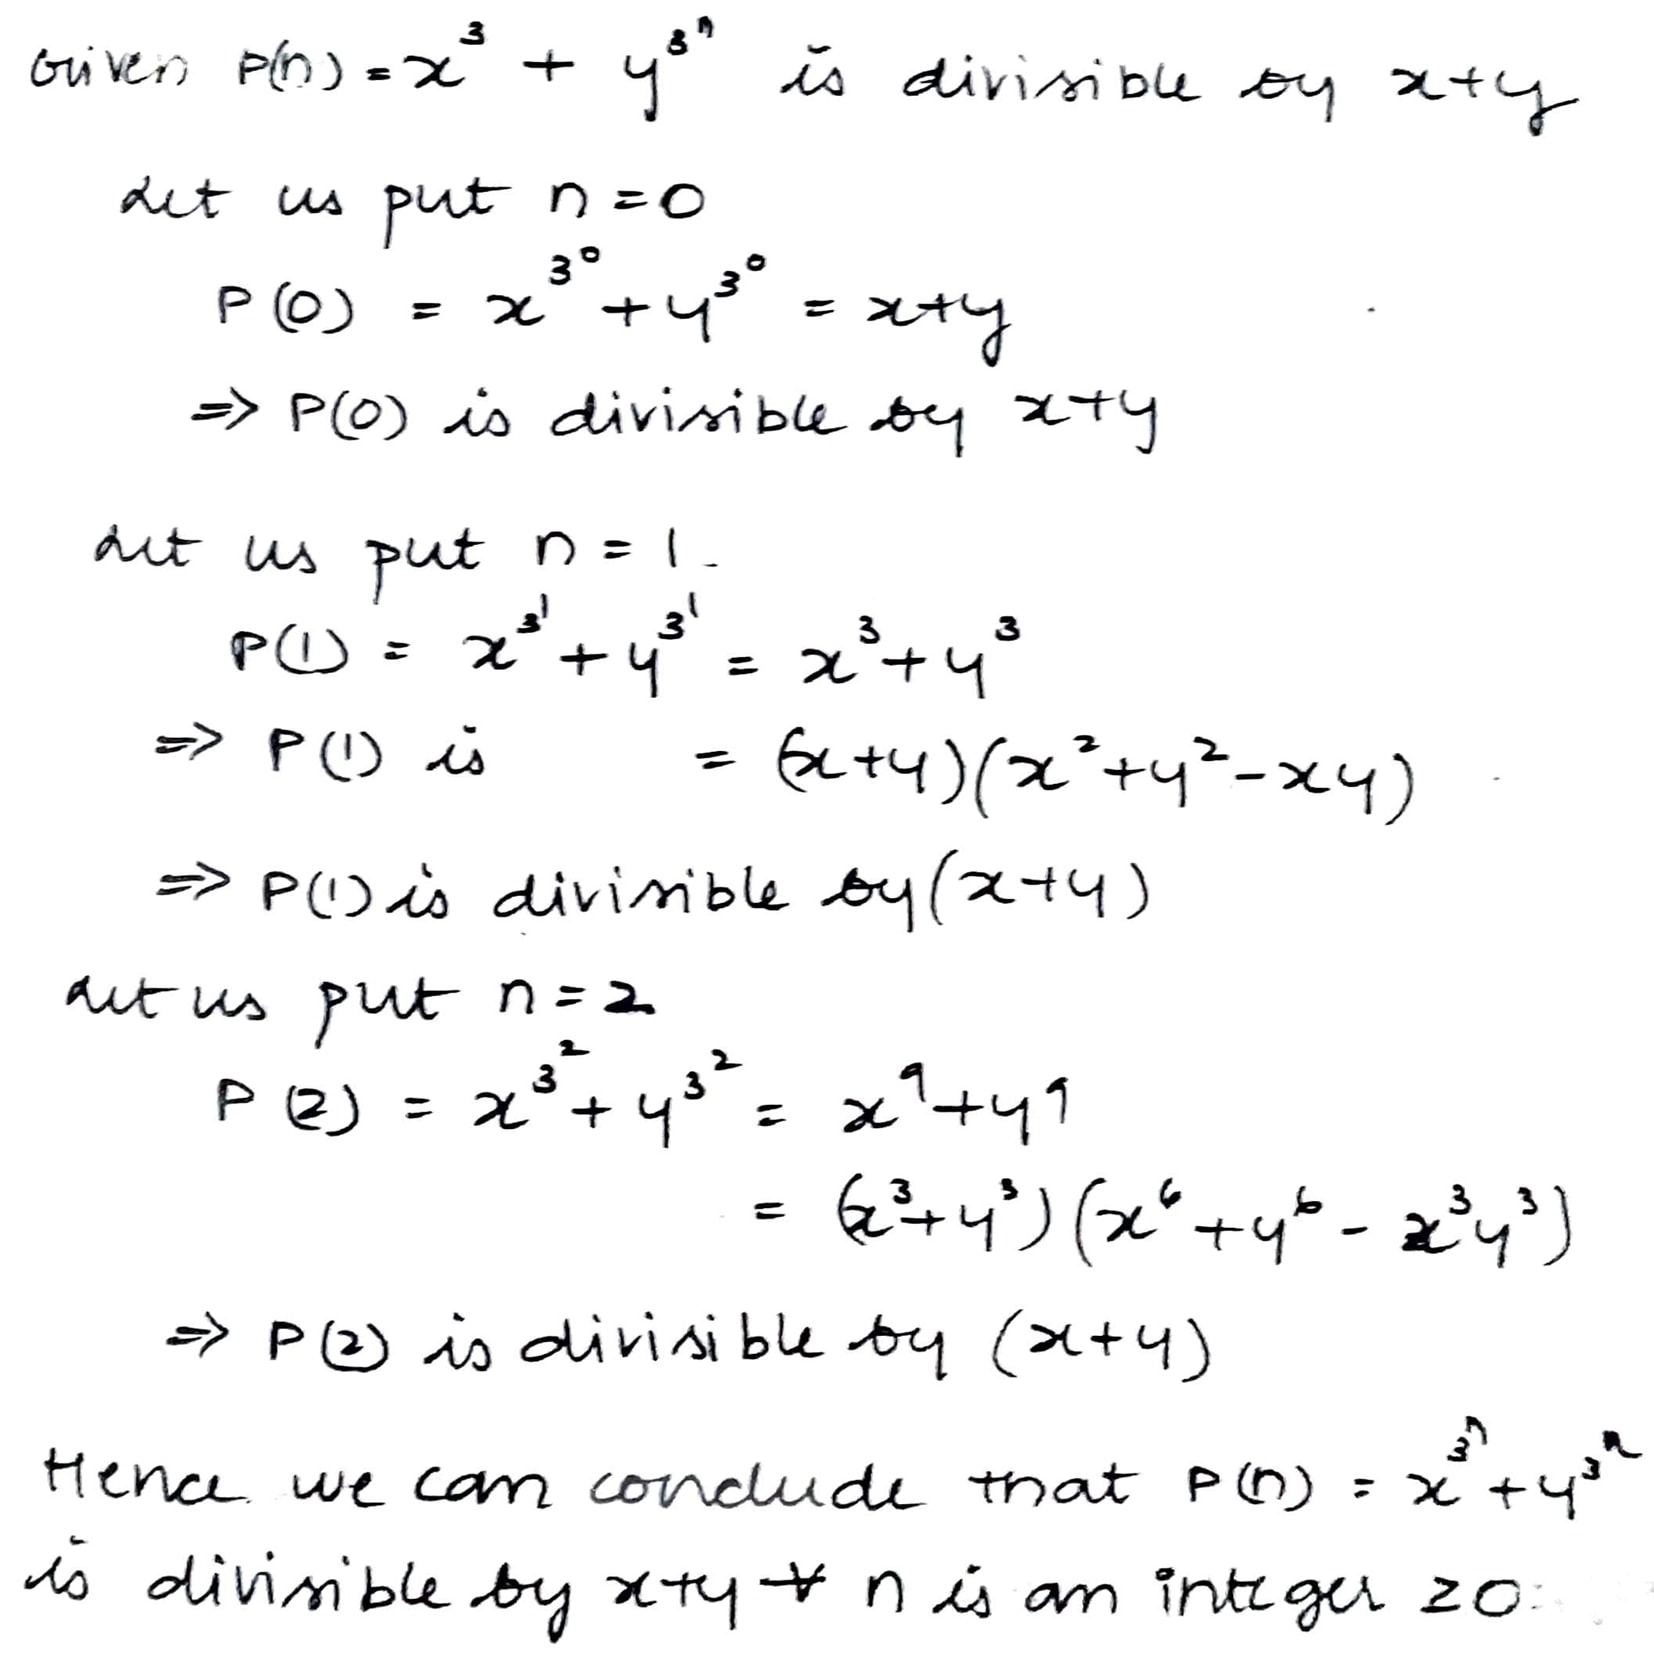 Given P(n) = x³ + y^3^n is divisible by x+y
Let us put n=0
P(0) = x^3^0 + y^3^0 = x+y
=> P(0) is divisible by x+y
Let us put n=1.
P(1) = x^3^1 + y^3^1 = x³+y³
=> P(1) is = (x+y)(x²+y²-xy)
=> P(1) is divisible by (x+y)
Let us put n=2
P(2) = x^3^2 + y^3^2 = x⁹+y⁹
= (x³+y³)(x⁶+y⁶-x³y³)
=> P(2) is divisible by (x+y)
Hence we can conclude that P(n) = x^3^n + y^3^n
is divisible by x+y ∀ n is an integer ≥0.